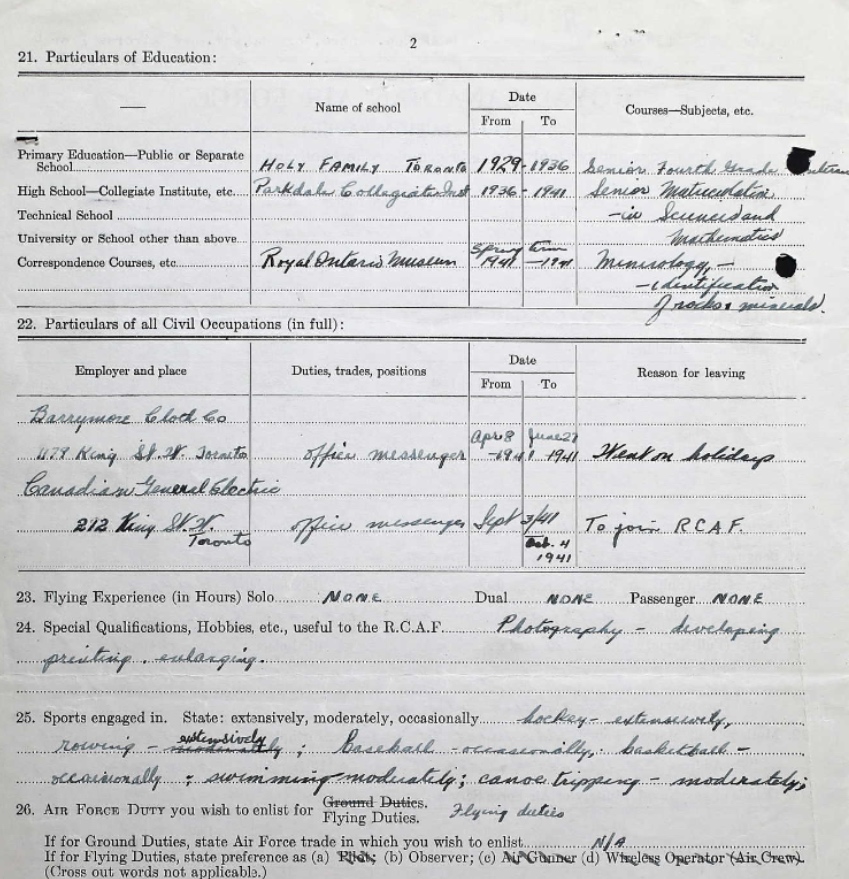 2
21. Particulars of Education:
Name of school
Date
From To
Courses—Subjects, etc.
Primary Education—Public or Separate
School HOLY FAMILY TORONTO 1929-1936 Senior Fourth Grade
High School—Collegiate Institute, etc. Parkdale Collegiate Inst 1936 - 1941 Senior Matriculation
Technical School -in Sciences and
University or School other than above Mathematics
Correspondence Courses, etc. Royal Ontario Museum Spring term 1941 -1941 Minerology, -
-identification
of rocks & minerals.
22. Particulars of all Civil Occupations (in full):
Employer and place
Duties, trades, positions
Date
From To
Reason for leaving
Barrymore Cloth Co
1179 King St. W. Toronto office messenger Apr 8 -1941 June 27 1941 Went on holidays
Canadian General Electric
212 King St. W. office messenger Sept 3/41 To join R.C.A.F.
Toronto Oct. 4
1941
23. Flying Experience (in Hours) Solo NONE Dual NONE Passenger NONE
24. Special Qualifications, Hobbies, etc., useful to the R.C.A.F. Photography - developing
printing, enlarging.
25. Sports engaged in. State: extensively, moderately, occasionally hockey - extensively,
rowing - moderately extensively; Baseball - occasionally, basketball -
occasionally; swimming moderately; canoe tripping - moderately;
26. AIR FORCE DUTY you wish to enlist for Ground Duties.
Flying Duties. Flying duties
If for Ground Duties, state Air Force trade in which you wish to enlist N/A
If for Flying Duties, state preference as (a) Pilot; (b) Observer; (c) Air Gunner (d) Wireless Operator (Air Crew).
(Cross out words not applicable.)